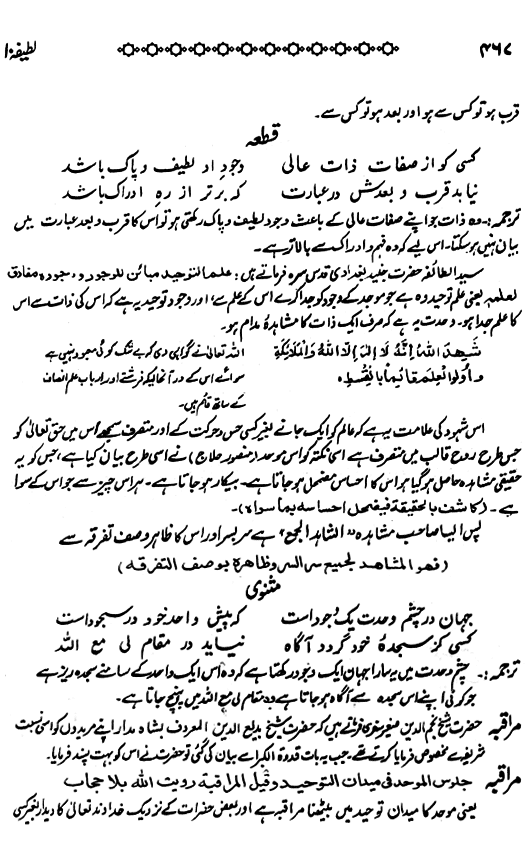 ۴۶۷ لطیفہ ۱
قرب ہو تو کس سے ہو اور بعد ہو تو کس سے۔
قطعہ
کسی کو از صفات ذات عالی وجود او لطیف و پاک باشد
نیابد قرب و بعدش در عبارت کہ برتر از رہِ ادراک باشد
ترجمہ:۔ وہ ذات جو اپنے صفات عالی کے باعث وجود لطیف و پاک رکھتی ہو تو اس کا قرب و بعد عبارت میں
بیان نہیں ہو سکتا۔ اس لیے کہ وہ فہم و ادراک سے بالاتر ہے۔
سید الطائفہ حضرت جنید بغدادی قدس سرہ فرماتے ہیں: علم التوحید مبائن للوجود و وجودہ مفارق
لعلمہ یعنی علم توحید وہ ہے جو موحد کے وجود کو جدا کرے اس کے علم سے اور وجود توحید یہ ہے کہ اس کی ذات سے اس
کا علم جدا ہو۔ وحدت یہ ہے کہ صرف ایک ذات کا مشاہدہ مدام ہو۔
شَهِدَ اللهُ أَنَّهُ لَا إِلٰهَ إِلَّا اللهُ وَالْمَلَائِكَةِ اللہ تعالیٰ نے گواہی دی کہ بے شک کوئی معبود نہیں ہے
وَأُولُوا لْعِلْمِ قَائِمًا بِالْقِسْطِ سوائے اس کے در آنحالیکہ فرشتے اور ارباب علم انصاف
کے ساتھ قائم ہیں۔
اس شہود کی علامت یہ ہے کہ عالم کو ایک جانے بغیر کسی حس و حرکت کے اور متصرف سمجھے اس میں حق تعالیٰ کو
جس طرح روح قالب میں متصرف ہے اسی نکتہ کو اس موحد (منصور حلاج) نے اسی طرح بیان کیا ہے، جس کو یہ
حقیقی مشاہدہ حاصل ہو گیا ہو اس کا احساس مضمحل ہو جاتا ہے۔ بیکار ہو جاتا ہے۔ ہر اس چیز سے جو اس کے سوا
ہے۔ (کاشف بالحقیقۃ فیضمحل احساسہ بما سواہ)۔
پس ایسا صاحب مشاہدہ "الشاہد الجمع" ہے سر بسر اور اس کا ظاہر وصف تفرقہ سے
(فھو المشاھد لجمیع سر السر وظاھرہ بوصف التفرقہ)
مثنوی
جہان در چشم وحدت یک وجود است کہ پیش واحد خود در سجود است
کسی کز سجدۂ خود گردد آگاہ نیاید در مقام لی مع اللہ
ترجمہ:۔ چشم وحدت میں یہ سارا جہان ایک وجود رکھتا ہے کہ وہ اس ایک واحد کے سامنے سجدہ ریز ہے
جو کوئی اپنے اس سجدہ سے آگاہ ہو جاتا ہے وہ مقام لی مع اللہ میں پہنچ جاتا ہے۔
مراقبہ حضرت شیخ نجم الدین صغیر صفوی فرماتے ہیں کہ حضرت شیخ بدیع الدین المعروف بشاہ مدار اپنے مریدوں کو اسی نسبت
شریفہ سے مخصوص فرمایا کرتے تھے۔ جب یہ بات قدوۃ الکبرا سے بیان کی گئی تو حضرت نے اس کو بہت پسند فرمایا۔
مراقبہ جلوس الموحد فی میدان التوحید وقیل المراقبۃ رویت اللہ بلا حجاب
یعنی موحد کا میدان توحید میں بیٹھنا مراقبہ ہے اور بعض حضرات کے نزدیک خداوند تعالیٰ کا دیدار بغیر کسی